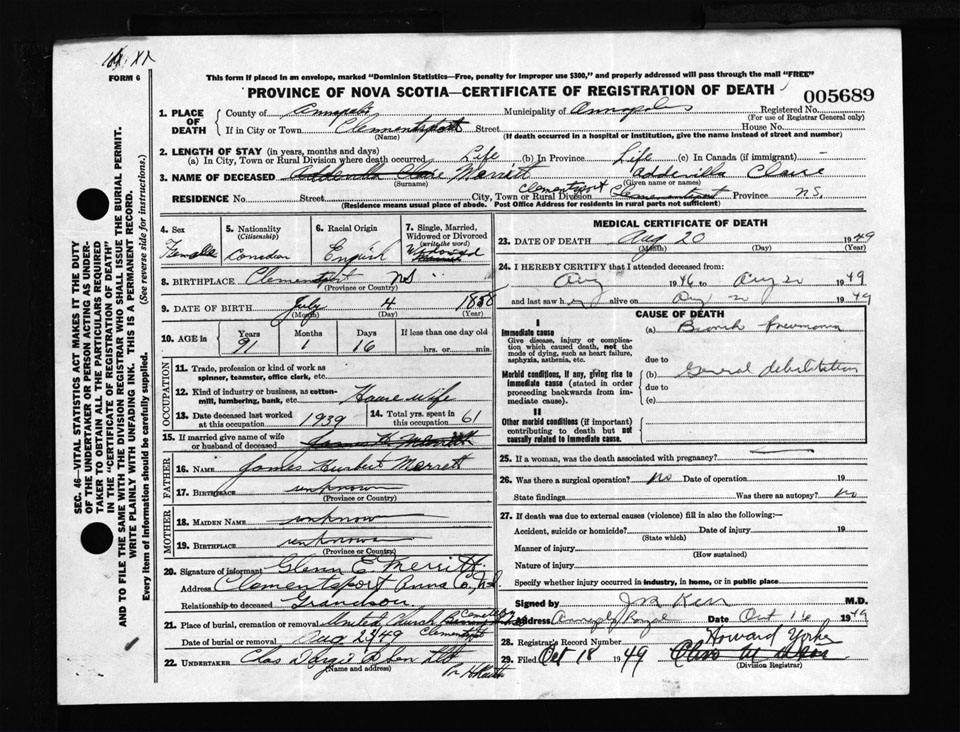 FORM 6
This form if placed in an envelope, marked "Dominion Statistics—Free, penalty for improper use $300," and properly addressed will pass through the mail "FREE"
PROVINCE OF NOVA SCOTIA—CERTIFICATE OF REGISTRATION OF DEATH
005689
1. PLACE OF DEATH
County of Annapolis Municipality of Annapolis Registered No.
(For use of Registrar General only)
If in City or Town Clementsport Street House No.
(Name) (If death occurred in a hospital or institution, give the name instead of street and number)
2. LENGTH OF STAY (in years, months and days)
(a) In City, Town or Rural Division where death occurred Life (b) In Province Life (c) In Canada (if immigrant) -
3. NAME OF DECEASED Merritt Claire
(Surname) (Given name or names)
RESIDENCE No. Street City, Town or Rural Division Clementsport Province N.S.
(Residence means usual place of abode. Post Office Address for residents in rural parts not sufficient)
4. Sex Female
5. Nationality (Citizenship) Canadian
6. Racial Origin English
7. Single, Married, Widowed or Divorced (write the word) Widowed
8. BIRTHPLACE Clementsport NS
(Province or Country)
9. DATE OF BIRTH July 4 1858
(Month) (Day) (Year)
10. AGE in Years 91 Months 1 Days 16 If less than one day old hrs. or min.
OCCUPATION
11. Trade, profession or kind of work as spinner, teamster, office clerk, etc.
12. Kind of industry or business, as cotton-mill, lumbering, bank, etc. House wife
13. Date deceased last worked at this occupation 1939
14. Total yrs. spent in this occupation 61
15. If married give name of wife or husband of deceased
FATHER
16. NAME James Herbert Merrett
17. BIRTHPLACE unknown
(Province or Country)
MOTHER
18. MAIDEN NAME unknown
19. BIRTHPLACE unknown
(Province or Country)
20. Signature of informant Glenn E. Merritt
Address Clementsport Anna Co., N.S.
Relationship to deceased Grandson
21. Place of burial, cremation or removal United Church Cemetery Clementsport
Date of burial or removal Aug 23 49
22. UNDERTAKER
(Name and address)
MEDICAL CERTIFICATE OF DEATH
23. DATE OF DEATH Aug 20 1949
(Month) (Day) (Year)
24. I HEREBY CERTIFY that I attended deceased from:
Aug 1946 to Aug 20 1949
and last saw h alive on Aug 20 1949
CAUSE OF DEATH
I
Immediate cause
Give disease, injury or complication which caused death, not the mode of dying, such as heart failure, asphyxia, asthenia, etc.
(a) Pneumonia
due to
Morbid conditions, if any, giving rise to immediate cause (stated in order proceeding backwards from immediate cause).
(b) General debilitation
due to
(c)
II
Other morbid conditions (if important) contributing to death but not causally related to immediate cause.
25. If a woman, was the death associated with pregnancy?
26. Was there a surgical operation? no Date of operation 19
State findings Was there an autopsy? no
27. If death was due to external causes (violence) fill in also the following:—
Accident, suicide or homicide? Date of injury 19
(State which)
Manner of injury
(How sustained)
Nature of injury
Specify whether injury occurred in industry, in home, or in public place
Signed by Kerr M.D.
Address Annapolis Royal Date Oct 16 1949
28. Registrar's Record Number
29. Filed Oct 18 1949 Howard Yorke
(Division Registrar)
SEC. 46—VITAL STATISTICS ACT MAKES IT THE DUTY
OF THE UNDERTAKER OR PERSON ACTING AS UNDER-
TAKER TO OBTAIN ALL THE PARTICULARS REQUIRED
IN THE "CERTIFICATE OF REGISTRATION OF DEATH"
AND TO FILE THE SAME WITH THE DIVISION REGISTRAR WHO SHALL ISSUE THE BURIAL PERMIT.
WRITE PLAINLY WITH UNFADING INK. THIS IS A PERMANENT RECORD.
Every item of information should be carefully supplied. (See reverse side for instructions.)